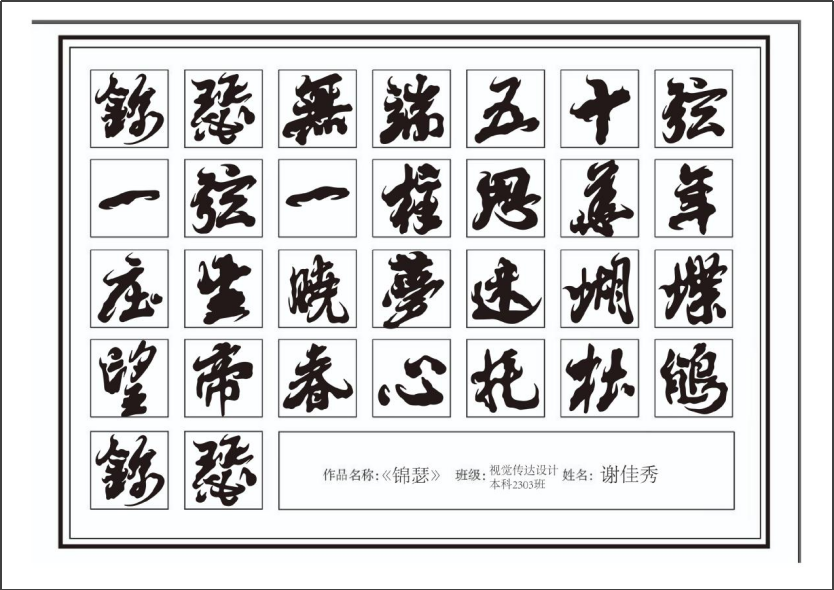 錦瑟無端五十弦
一弦一柱思華年
莊生曉夢迷蝴蝶
望帝春心托杜鵑
錦瑟
作品名称:《锦瑟》 班级:视觉传达设计本科2303班 姓名:谢佳秀